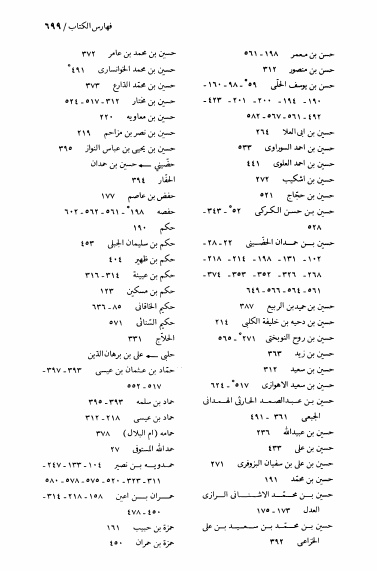 فهارس الكتاب / ٦٩٩
حسن بن معمر ١٩٨-٥٦١
حسن بن منصور ٣١٢
حسن بن يوسف الحلّي ٥٩*-٩٨-١٦٠-
١٩٠-١٩٤-٢٠٠-٢٠١-٤٢٣-
٤٩٢-٥٦١-٥٦٧-٥٨٢
حسين بن ابى العلا ٢٦٤
حسين بن احمد السوراوى ٥٣٣
حسين بن احمد العلوى ٤٤١
حسين بن اشكيب ٢٧٢
حسين بن حجّاج ٥٢١
حسين بن حسن الكركى ٥٢*-٣٤٣-
٥٢٨
حسين بن حمدان الحضّينى ٢٢-٢٨-
١٠٢-١٣١-١٩٨-٢١٤-٢١٨-
٢٦٨-٣٢٦-٣٥٢-٣٥٣-٣٧٤-
٥٦١-٥٦٤-٥٦٦-٦٤٩
حسين بن حميد بن الربيع ٣٨٧
حسين بن دحيه بن خليفة الكلبى ٢١٤
حسين بن روح النوبختى ٢٧١*-٥٦٥
حسين بن زيد ٣٦٣
حسين بن سعيد ٣١٢
حسين بن سعيد الاهوازى ٥١٧*-٦٢٤
حسين بن عبدالصمد الحارثى الهمدانى
الجبعى ٣٦١-٤٩١
حسين بن عبيدالله ٢٣٦
حسين بن على ٤٣٣
حسين بن على بن سفيان البزوفرى ٢٧١
حسين بن محمّد ١٩١
حسين بن محمّد الاشنانى الرازى
العدل ١٧٣-١٧٥
حسين بن محمّد بن سعيد بن على
الخزاعى ٣٩٢
حسين بن محمد بن عامر ٣٧٢
حسين بن محمد الخوانسارى ٤٩١*
حسين بن محمّد الذارع ٣٧٣
حسين بن مختار ٣١٢-٥١٧-٥٢٤
حسين بن معاويه ٢٢٠
حسين بن نصر بن مزاحم ٢١٩
حسين بن يحيى بن عباس النواز ٣٩٥
حضّينى ← حسين بن حمدان
الحفّار ٣٩٤
حفض بن عاصم ١٧٧
حفصه ١٩٨*-٥٦١-٥٦٢-٦٠٢
حكم ١٩٠
حكم بن سليمان الجبلى ٤٥٣
حكم بن ظهير ٤٠٤
حكم بن عيينة ٣١٤-٣١٦
حكم بن مسكين ١٢٣
حكيم الخاقانى ٨٥-٦٣٦
حكيم السّنائى ٥٧١
الحلّاج ٣٣١
حلبى ← على بن برهان الدين
حمّاد بن عثمان بن عيسى ٣٩٣-٣٩٧-
٥١٧-٥٥٢
حماد بن سلمه ٣٩٣-٣٩٥
حماد بن عيسى ٢١٨-٣١٢
حمامه (ام البلال) ٣٧٨
حمدالله المستوفى ٢٧
حمدويه بن نصير ١٠٤-١٣٣-٢٤٧-
٣١١-٣٢٣-٥٢٠-٥٧٥-٥٧٨-٥٨٠
حمران بن اعين ١٥٨-٢١٨-٣١٤-
٤٥٠-٤٧٨
حمزة بن حبيب ١٦١
حمزة بن حمران ٤٥٠